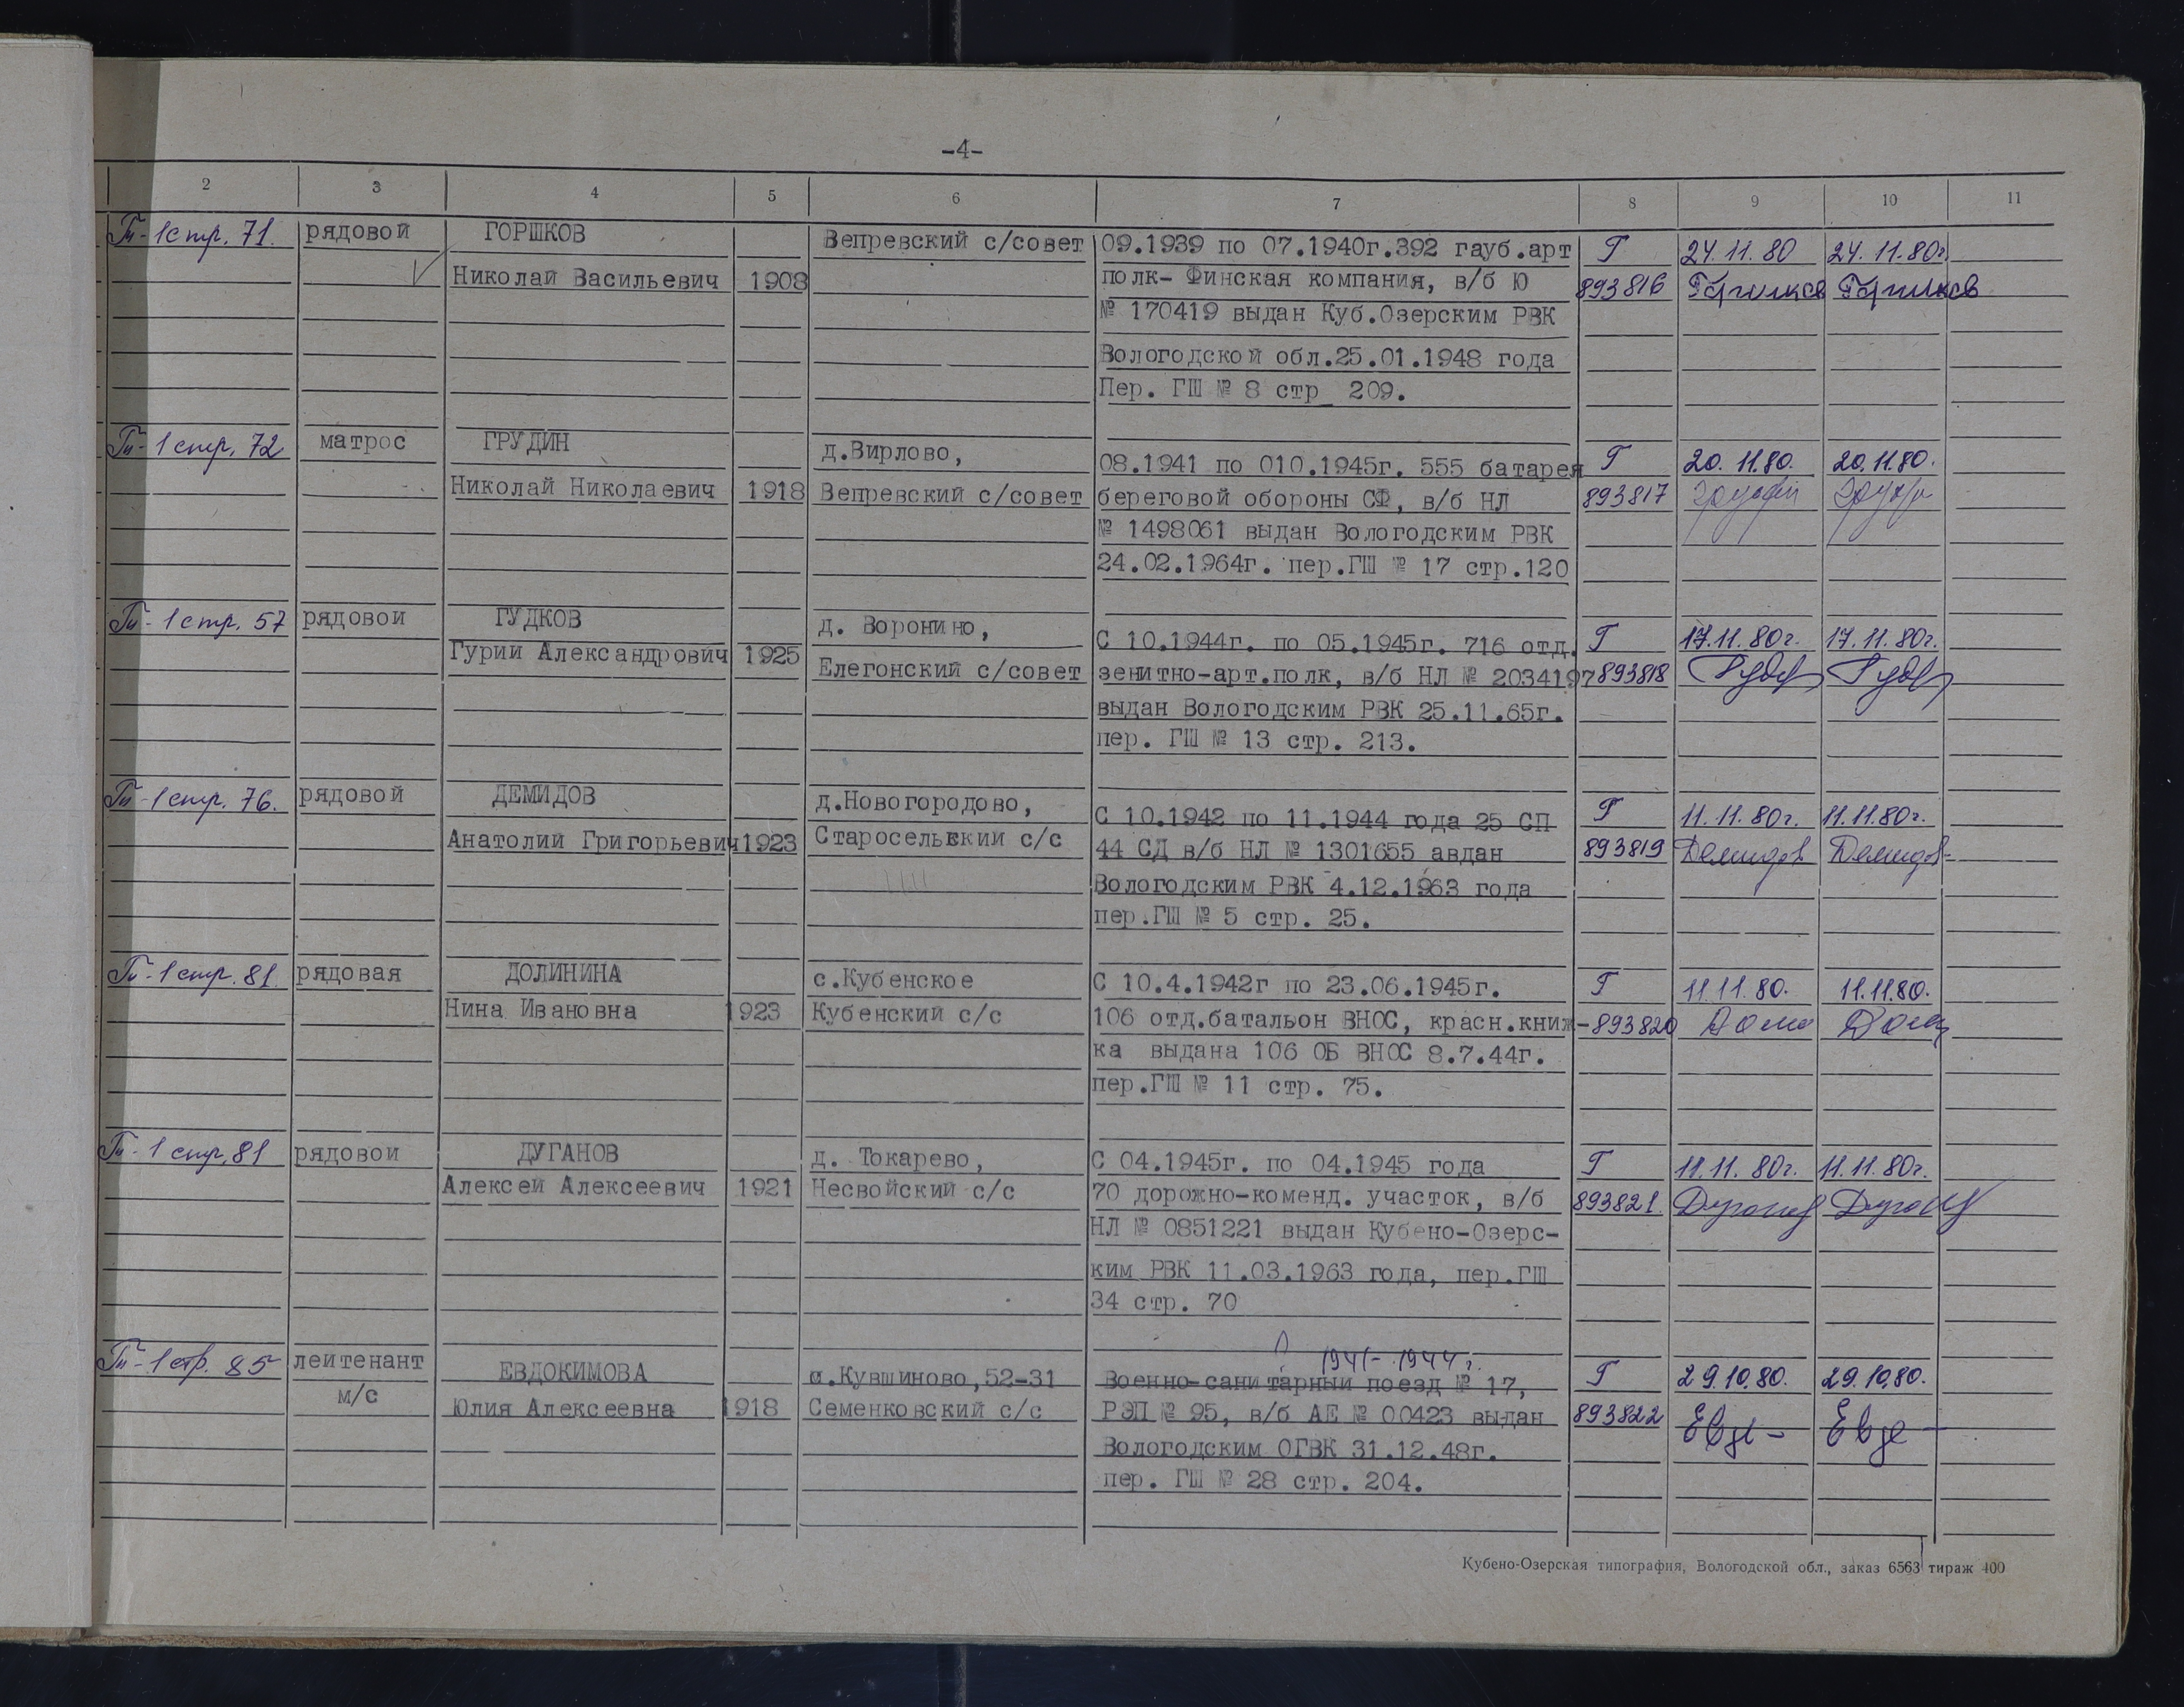 -4-
2 3 4 5 6 7 8 9 10 11
Гп-1 стр. 71. рядовой ГОРШКОВ Вепревский с/совет 09.1939 по 07.1940г.392 гауб.арт Г 24.11.80 24.11.80г.
Николай Васильевич 1908 полк- Финская компания, в/б Ю 893816 Горшков Горшков
№ 170419 выдан Куб.Озерским РВК
Вологодской обл.25.01.1948 года
Пер. ГШ № 8 стр 209.
Гп-1 стр. 72 матрос ГРУДИН д.Вирлово, 08.1941 по 010.1945г. 555 батарея Г 20.11.80. 20.11.80.
Николай Николаевич 1918 Вепревский с/совет береговой обороны СФ, в/б НЛ 893817
№ 1498061 выдан Вологодским РВК
24.02.1964г. пер.ГШ № 17 стр.120
Гп-1 стр. 57 рядовой ГУДКОВ д. Воронино, С 10.1944г. по 05.1945г. 716 отд. Г 17.11.80г. 17.11.80г.
Гурий Александрович 1925 Елегонский с/совет зенитно-арт.полк, в/б НЛ № 2034197 893818
выдан Вологодским РВК 25.11.65г.
пер. ГШ № 13 стр. 213.
Гп-1 стр. 76. рядовой ДЕМИДОВ д.Новогородово, С 10.1942 по 11.1944 года 25 СП Г 11.11.80г. 11.11.80г.
Анатолий Григорьевич 1923 Старосельский с/с 44 СД в/б НЛ № 1301655 авдан 893819 Демидов Демидов
Вологодским РВК 4.12.1963 года
пер.ГШ № 5 стр. 25.
Гп-1 стр. 81. рядовая ДОЛИНИНА с.Кубенское С 10.4.1942г по 23.06.1945г. Г 11.11.80. 11.11.80.
Нина Ивановна 1923 Кубенский с/с 106 отд.батальон ВНОС, красн.книж- 893820
ка выдана 106 ОБ ВНОС 8.7.44г.
пер.ГШ № 11 стр. 75.
Гп-1 стр. 81 рядовой ДУГАНОВ д. Токарево, С 04.1945г. по 04.1945 года Г 11.11.80г. 11.11.80г.
Алексей Алексеевич 1921 Несвойский с/с 70 дорожно-коменд. участок, в/б 893821.
НЛ № 0851221 выдан Кубено-Озерс-
ким РВК 11.03.1963 года, пер.ГШ
34 стр. 70
1941-1944г.
Гп-1 стр. 85 лейтенант ЕВДОКИМОВА п.Кувшиново,52-31 Военно-санитарный поезд № 17, Г 29.10.80. 29.10.80.
м/с Юлия Алексеевна 1918 Семенковский с/с РЭП № 95, в/б АЕ № 00423 выдан 893822
Вологодским ОГВК 31.12.48г.
пер. ГШ № 28 стр. 204.
Кубено-Озерская типография, Вологодской обл., заказ 6563 тираж 400